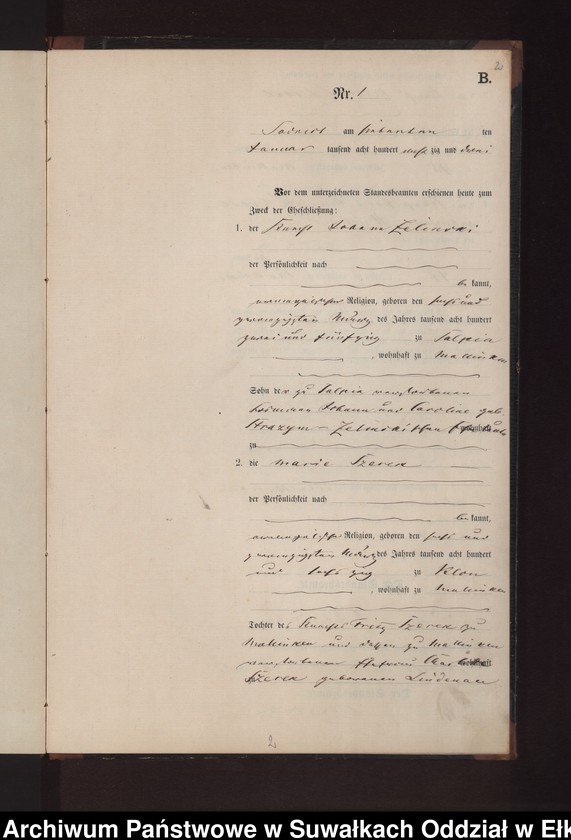 2
B.
Nr. 1
am ten
Januar tausend acht hundert zig und
Vor dem unterzeichneten Standesbeamten erschienen heute zum
Zweck der Eheschließung:
1. der Knecht Johann Zelinski
der Persönlichkeit nach
be kannt,
evangelischer Religion, geboren den sechs und
zwanzigsten März des Jahres tausend acht hundert
zwei und fünfzig zu Talpia
, wohnhaft zu Mallinken
Sohn der zu Talpia verstorbenen
Johann und Caroline geb.
Zelinskischen Eheleute
zu
2. die Marie Szerek
der Persönlichkeit nach
be kannt,
evangelischer Religion, geboren den sechs und
zwanzigsten März des Jahres tausend acht hundert
und sechzig zu
, wohnhaft zu Mallinken
Tochter des Knechts Fritz Szerek zu
Mallinken und dessen zu Mallinken
verstorbenen Ehefrau
Szerek geborenen Lindenau
2
Archiwum Państwowe w Suwałkach Oddział w Ełk